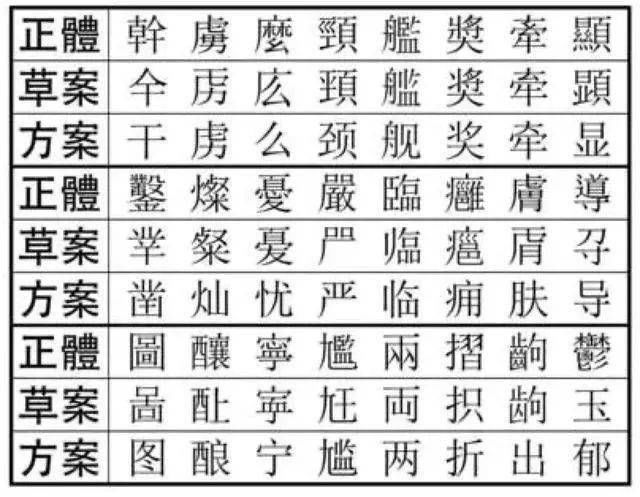 正體 幹 虜 麼 頸 艦 獎 牽 顯
草案 仐 虏 庅 頚 艦 奨 牵 顕
方案 干 虏 么 颈 舰 奖 牵 显
正體 鑿 燦 憂 嚴 臨 癰 膚 導
草案 粲 憂 严 临 肤 寻
方案 凿 灿 忧 严 临 痈 肤 导
正體 圖 釀 寧 尷 兩 摺 齣 鬱
草案 啚 尪 両 抧 玉
方案 图 酿 宁 尴 两 折 出 郁